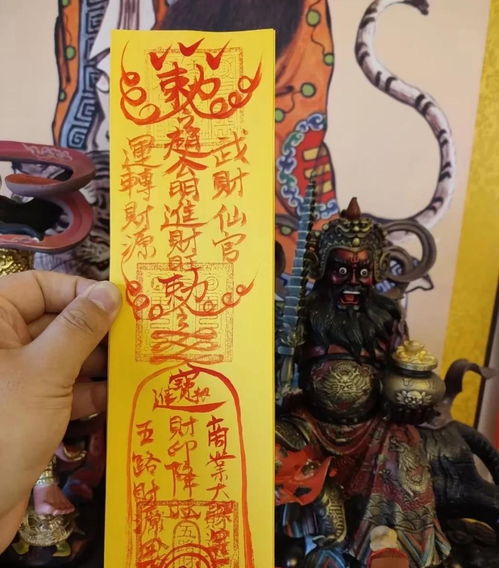 敕令
武財仙官
趙公明進財旺
運轉財源
敕令
招寶進
商業大勝
財印降
五路財源